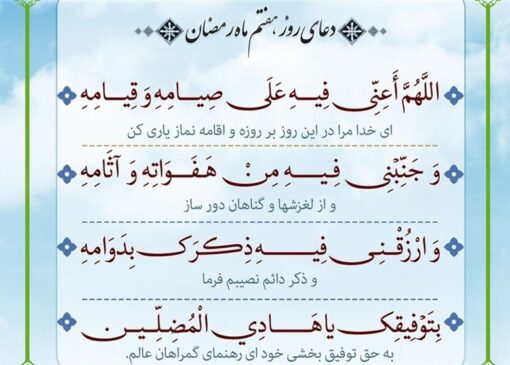 دعای روز هفتم ماه رمضان
اللهُمَّ أَعِنِّی فِیهِ عَلَی صِیامِهِ وَ قِیامِهِ
ای خدا مرا در این روز بر روزه و اقامه نماز یاری کن
وَ جَنِّبْنِی فِیهِ مِنْ هَفَوَاتِهِ وَ آثَامِهِ
و از لغزشها و گناهان دور ساز
وَ ارْزُقْنِی فِیهِ ذِکرَک بِدَوَامِهِ
و ذکر دائم نصیبم فرما
بِتَوْفِیقِک یا هَادِي الْمُضِلِّینَ
به حق توفیق بخشی خود ای رهنمای گمراهان عالم.